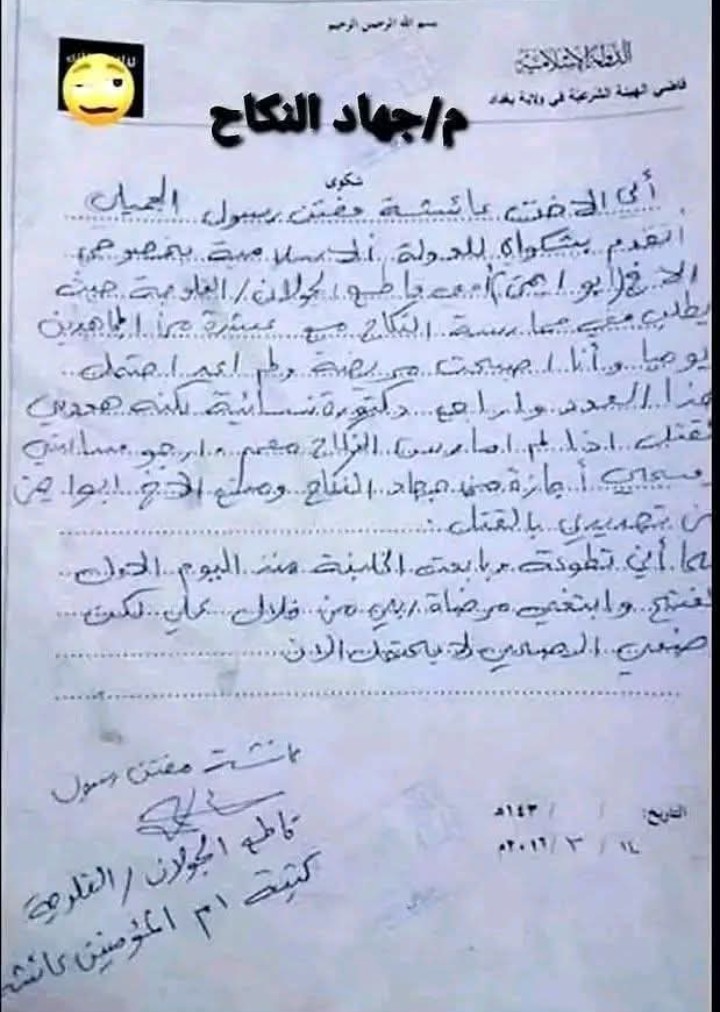 بسم الله الرحمن الرحيم
الدولة الإسلامية
قاضي الهيئة الشرعية في ولاية بغداد
م/جهاد النكاح
شكوى
أني الاخت عائشة مفتن رسول الجميلي
أتقدم بشكواي للدولة الاسلامية بخصوص
الاخ (ابو ايمن) أمير قاطع الجولان/الفلوجة حيث
يطلب مني ممارسة النكاح مع عشرة من المجاهدين
يوميا وأنا اصبحت مريضة ولم اعد احتمل
هذا العدد واراجع دكتورة نسائية لكنه هددني
بقتلي اذا لم امارس النكاح معهم، ارجو مساعدتي
أجازة من جهاد النكاح ومنع الاخ ابو ايمن
من تهديدي بالقتل.
كما أني تطوعت وبايعت الخليفة منذ اليوم الاول
وابتغي مرضاة ربي من خلال عملي لكن
الصحي لا يحتمل الان
عائشة مفتن رسول
قاطع الجولان/الفلوجة
كتيبة ام المؤمنين عائشة
التاريخ: / / ١٤٣هـ
١٤ / ٣ / ٢٠١٦م